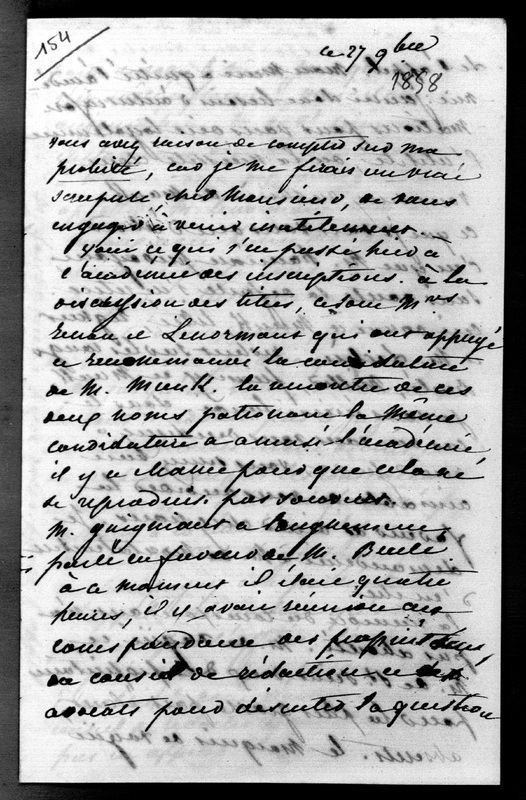 154
ce 27 9bre
1858
vous avez raison de compter sur ma
probité, car je me ferais un vrai
scrupule, cher Monsieur, de vous
engager à venir inutilement
voici ce qui s'est passé hier à
l'académie des inscriptions. à la
discussion des titres, ce sont Mrs
renan et Lenormant qui ont appuyé
et recommandé la candidature
de M. Munk. la rencontre de ces
deux noms patronant la même
candidature a amusé l'académie
il y a chance pour que cela ne
se reproduise pas souvent.
M. guigniaut a longuement
parlé en faveur de M. Beulé
à ce moment il était quatre
heures, il y avait réunion au
correspondant des propriétaires,
du conseil de rédaction et des
avocats pour discuter la question